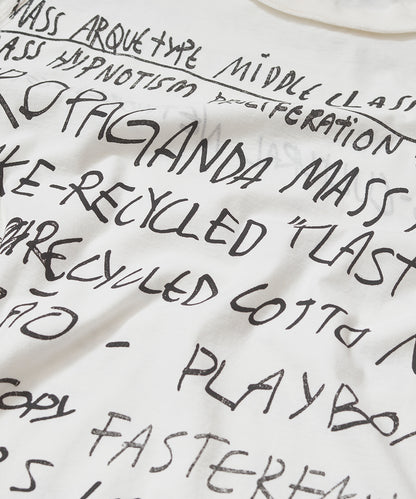 MASS ARQUETYPE MIDDLE CLASS
ASS HYPNOTISM
ROPAGANDA MASS
KE-RECYCLED "LAST
RECYCLED COTTON
ÃO - PLAYBO
COPY FASTER